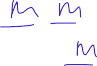 m m
m